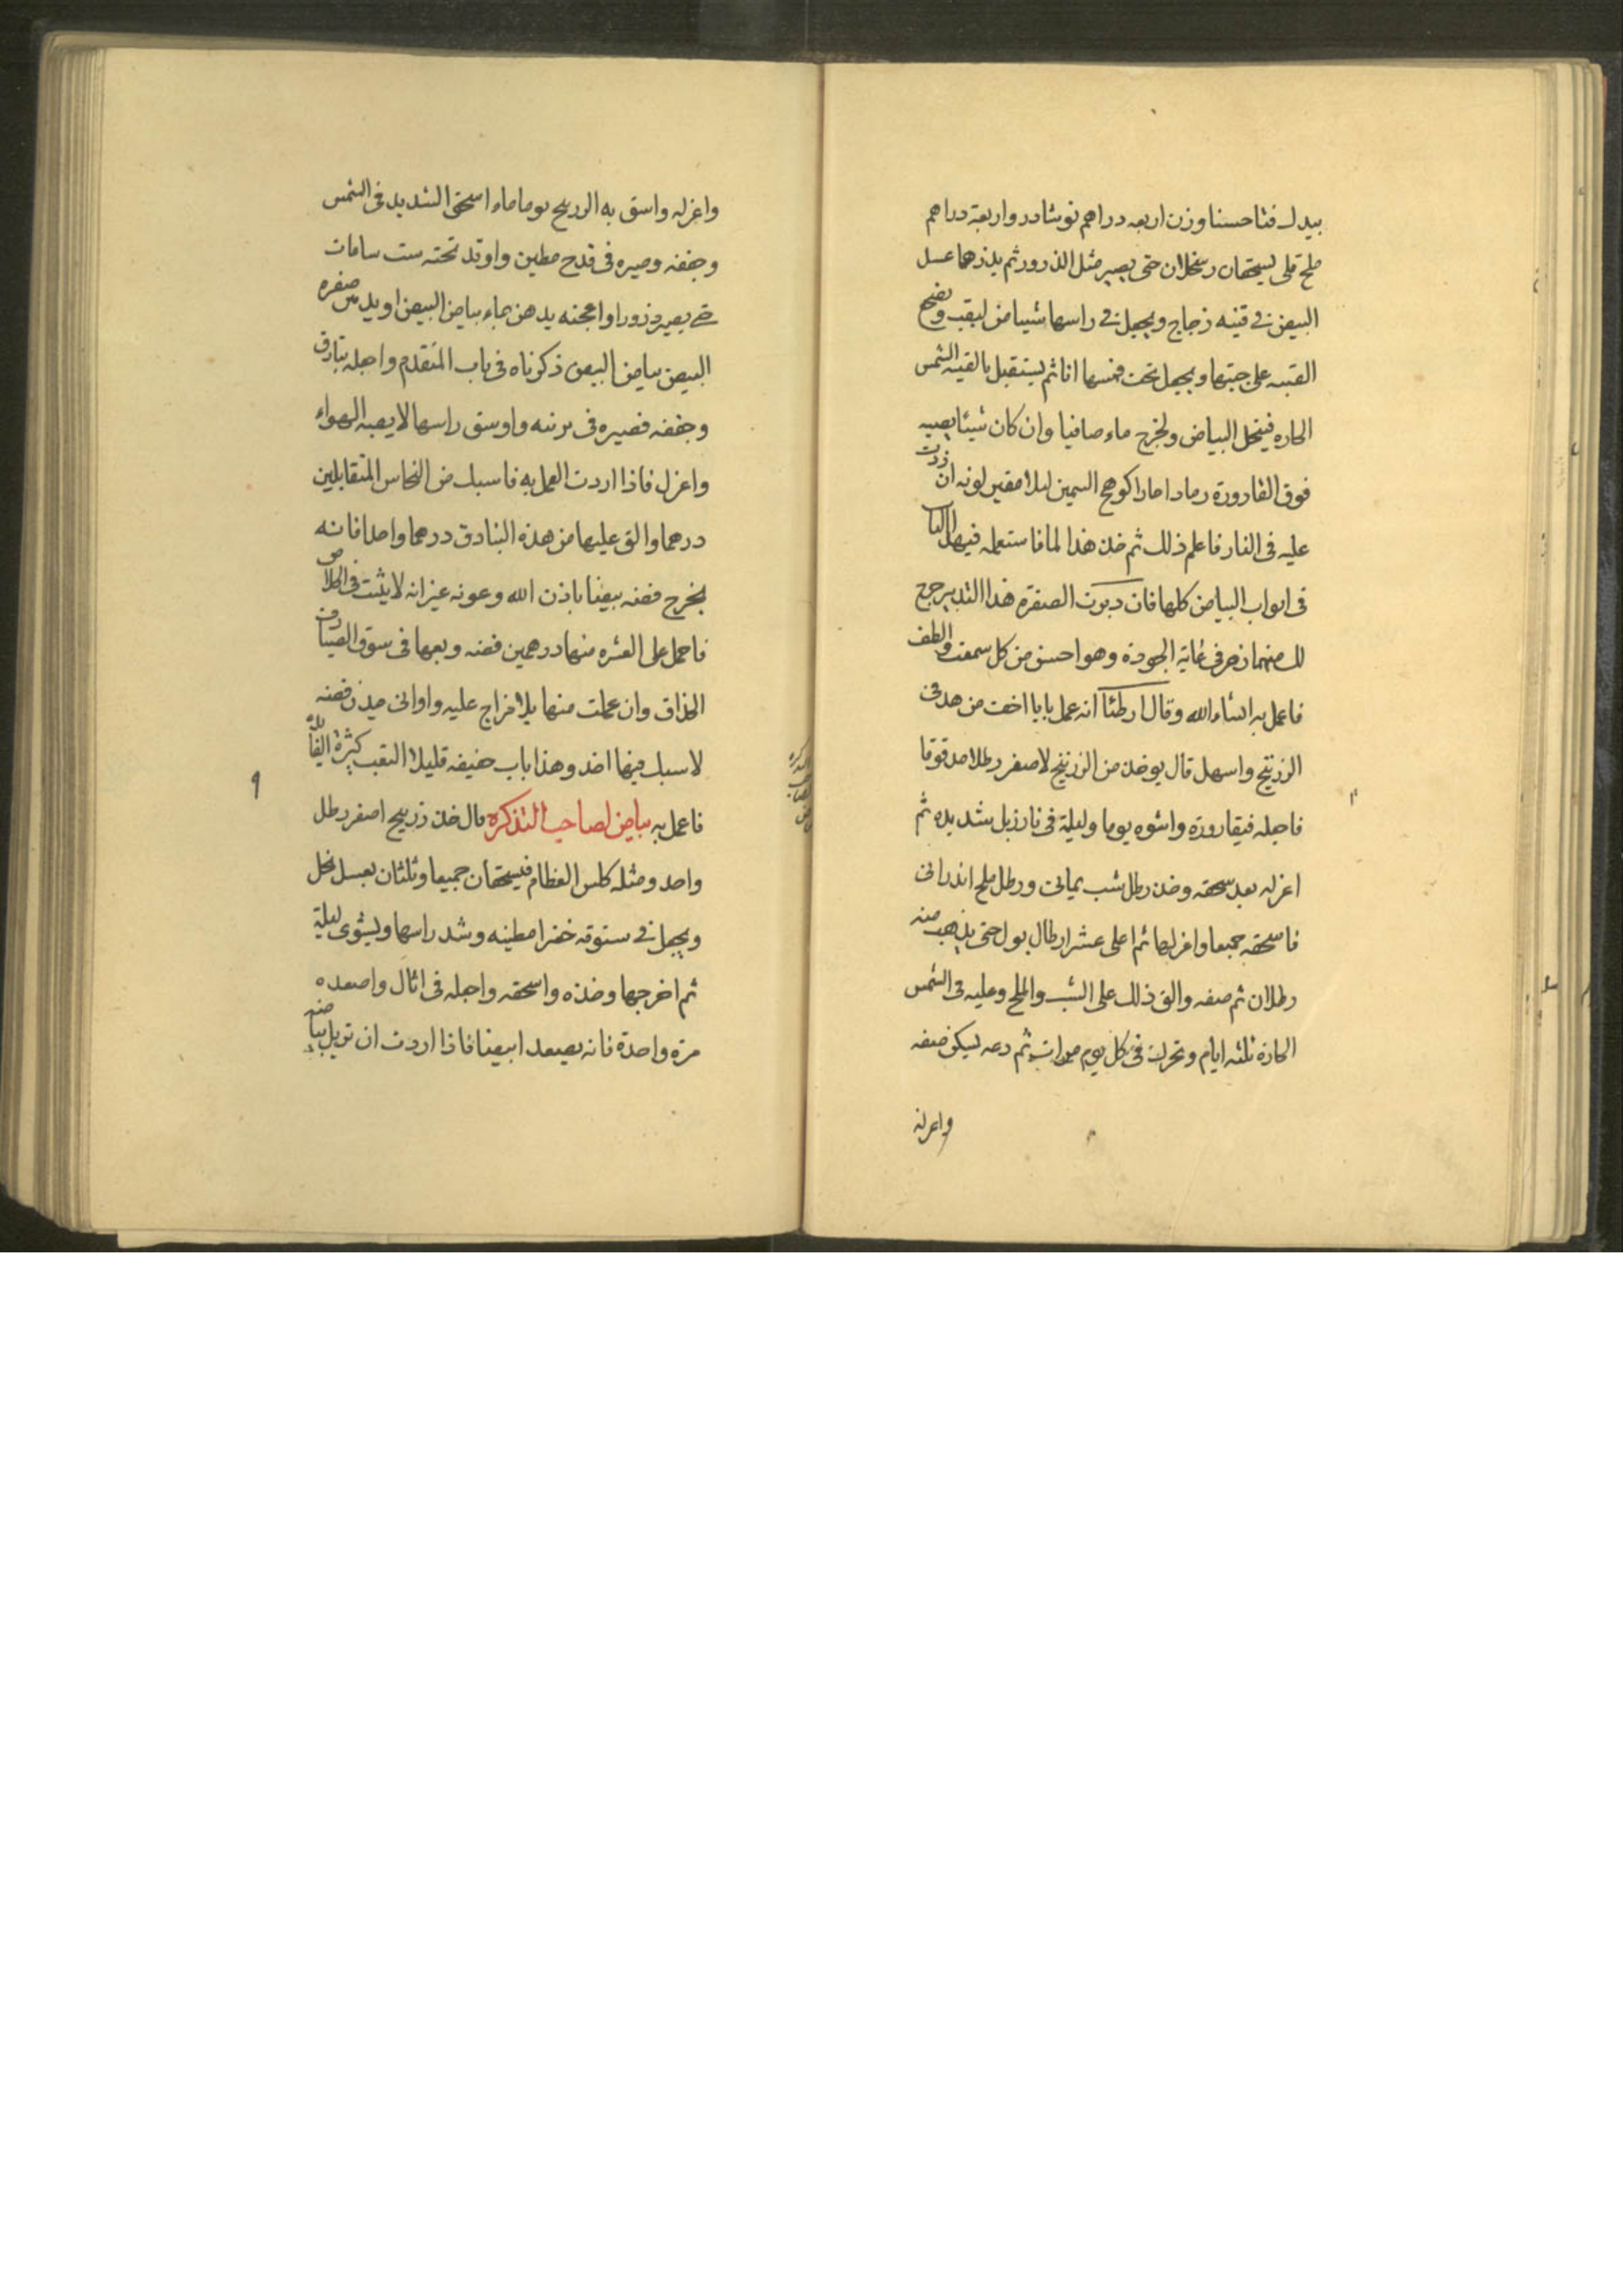 بيدك فتا حسنا وزن اربعه دراهم نوشادر واربعة دراهم
ملح قلى يسحقان وينخلان حتى يصير مثل الذرور ثم يذر هما عسل
البيض فى قنينه زجاج ويجعل فى راسها شيئا من ليف وتضع
القنينه على جنبها ويجعل تحت فمها انا ثم يستقبل بالقنينه الشمس
الحاره فينحل البياض ويخرج ماء صافيا وان كان شيئا يصيبه
فوق القارورة رمادا حارا السمين ليلا لونه ان زدت
عليه فى النار فاعلم ذلك ثم خذ هذا الما فاستعمله فيها الباب
فى ابواب البياض كلها فان دبرت الصفره هذا التدبير خرج
لك منهما فى غاية الجودة وهو احسن من كل سمعت والطف
فاعمل به انشاء الله وقال ارطئا انه عمل بابا اخف من هدفى
الزرنيخ واسهل قال يوخذ من الزرنيخ لاصفر رطلا مدقوقا
فاجعله فيقارورة واشوه يوما وليلة فى نار زبل شديده ثم
اعزله بعد سحقه وخذ رطل شب يمانى ورطل ملح اندرانى
فاسحقه جميعا واعزلها ثم اعلى عشر ارطال بول حتى يذهب منه
رطلان ثم صفه والق ذلك على الشب والملح وعليه فى الشمس
الحارة ثلثه ايام وتحرك فى كل يوم مرات ثم دعه ليسكن صفه
واعزله
واعزله واسق به الزرنيخ يوما ماء اسحق الشديد فى الشمس
وجففه وصيره فى قدح مطين واوقد تحته ست ساعات
حتى يصير ذرورا واعجنه بدهن بماء بياض البيض او بدهن صفره
البيض بياض البيض ذكرناه فى باب المتقدم واجعله بنادق
وجففه فصيره فى برنيه واوسق راسها لا يصبه الهواء
واعزل فاذا اردت العمل به فاسبك من النحاس المتقابلين
درهما والق عليها من هذه البنادق درهما واحدا فانه
يخرج فضه بيضا باذن الله وعونه غير انه لا يثبت فى الخلاص
فاحمل على العشره منها درهمين فضه وبعها فى سوق الصيارف
الحذاق وان عملت منها بلا اخراج عليه واوانى فضه
لا سبك فيها اخذ وهذا باب خفيفه قليلا التعب كثرة الفائدة
فاعمل به بياض لصاحب التذكره قال خذ زرنيخ اصفر رطل
واحد ومثله كلس العظام فيسحقان جميعا وثلثان بعسل نحل
ويجعل فى ستوقه خضرا مطينه وشد راسها ويشوى ليلة
ثم اخرجها وخذه واسحقه واجعله فى اثال واصعده
مرة واحدة فانه يصعد ابيضا فاذا اردت ان تزيل بياضه